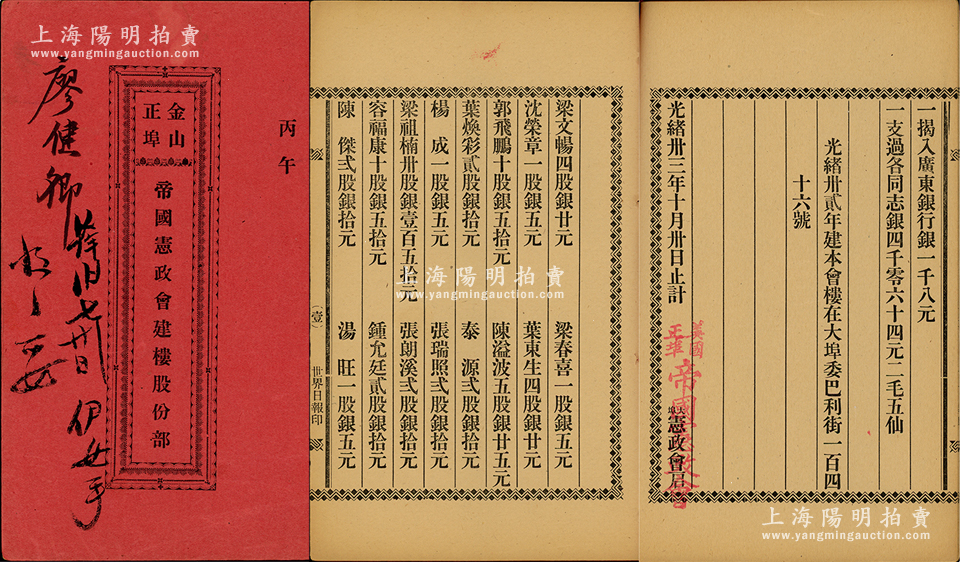 上海陽明拍賣
www.yangmingauction.com
丙午
金山
正埠
帝國憲政會建樓股份部
廖健卿
伊女手
上海陽明拍賣
www.yangmingauction.com
梁文暢四股銀廿元
梁春喜一股銀五元
沈榮章一股銀五元
葉東生四股銀廿元
郭飛鵬十股銀五拾元
陳溢波五股銀廿五元
葉煥彩貳股銀拾元
泰源弍股銀拾元
楊成一股銀五元
張瑞照弍股銀拾元
梁祖楠卅股銀壹百五拾元
張朗溪弍股銀拾元
容福康十股銀五拾元
鍾允廷貳股銀拾元
陳傑弍股銀拾元
湯旺一股銀五元
(壹)
世界日報印
一揭入廣東銀行銀一千八元
一支過各同志銀四千零六十四元二毛五仙
光緒卅貳年建本會樓在大埠委巴利街一百四
十六號
光緒卅三年十月卅日止計
大埠憲政會启
美國
正埠
帝國憲政會
上海陽明拍賣
www.yangmingauction.com
上海陽明拍賣
www.yangmingauction.com